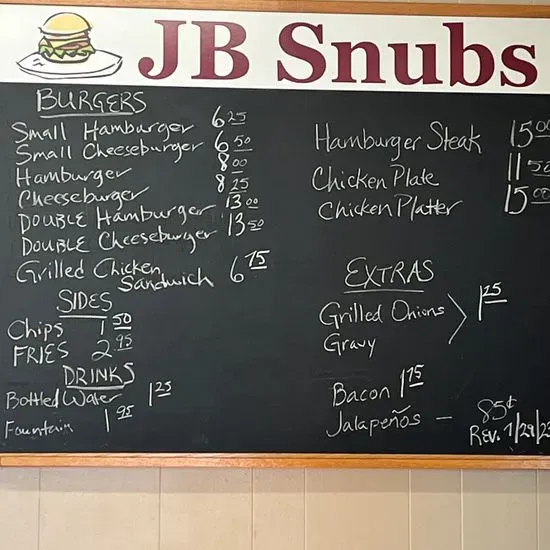 JB Snubs
BURGERS
Small Hamburger 6 25
Small Cheeseburger 6 50
Hamburger 8 00
Cheeseburger 8 25
DOUBLE Hamburger 13 00
DOUBLE Cheeseburger 13 50
Grilled Chicken
Sandwich 6 75
SIDES
Chips 1 50
FRIES 2 95
DRINKS
Bottled Water 1 25
Fountain 1 95
Hamburger Steak 15 00
Chicken Plate 11 50
Chicken Platter 15 00
EXTRAS
Grilled Onions 1 25
Gravy
Bacon 1 75
Jalapeños — 85¢
Rev. 1/29/23